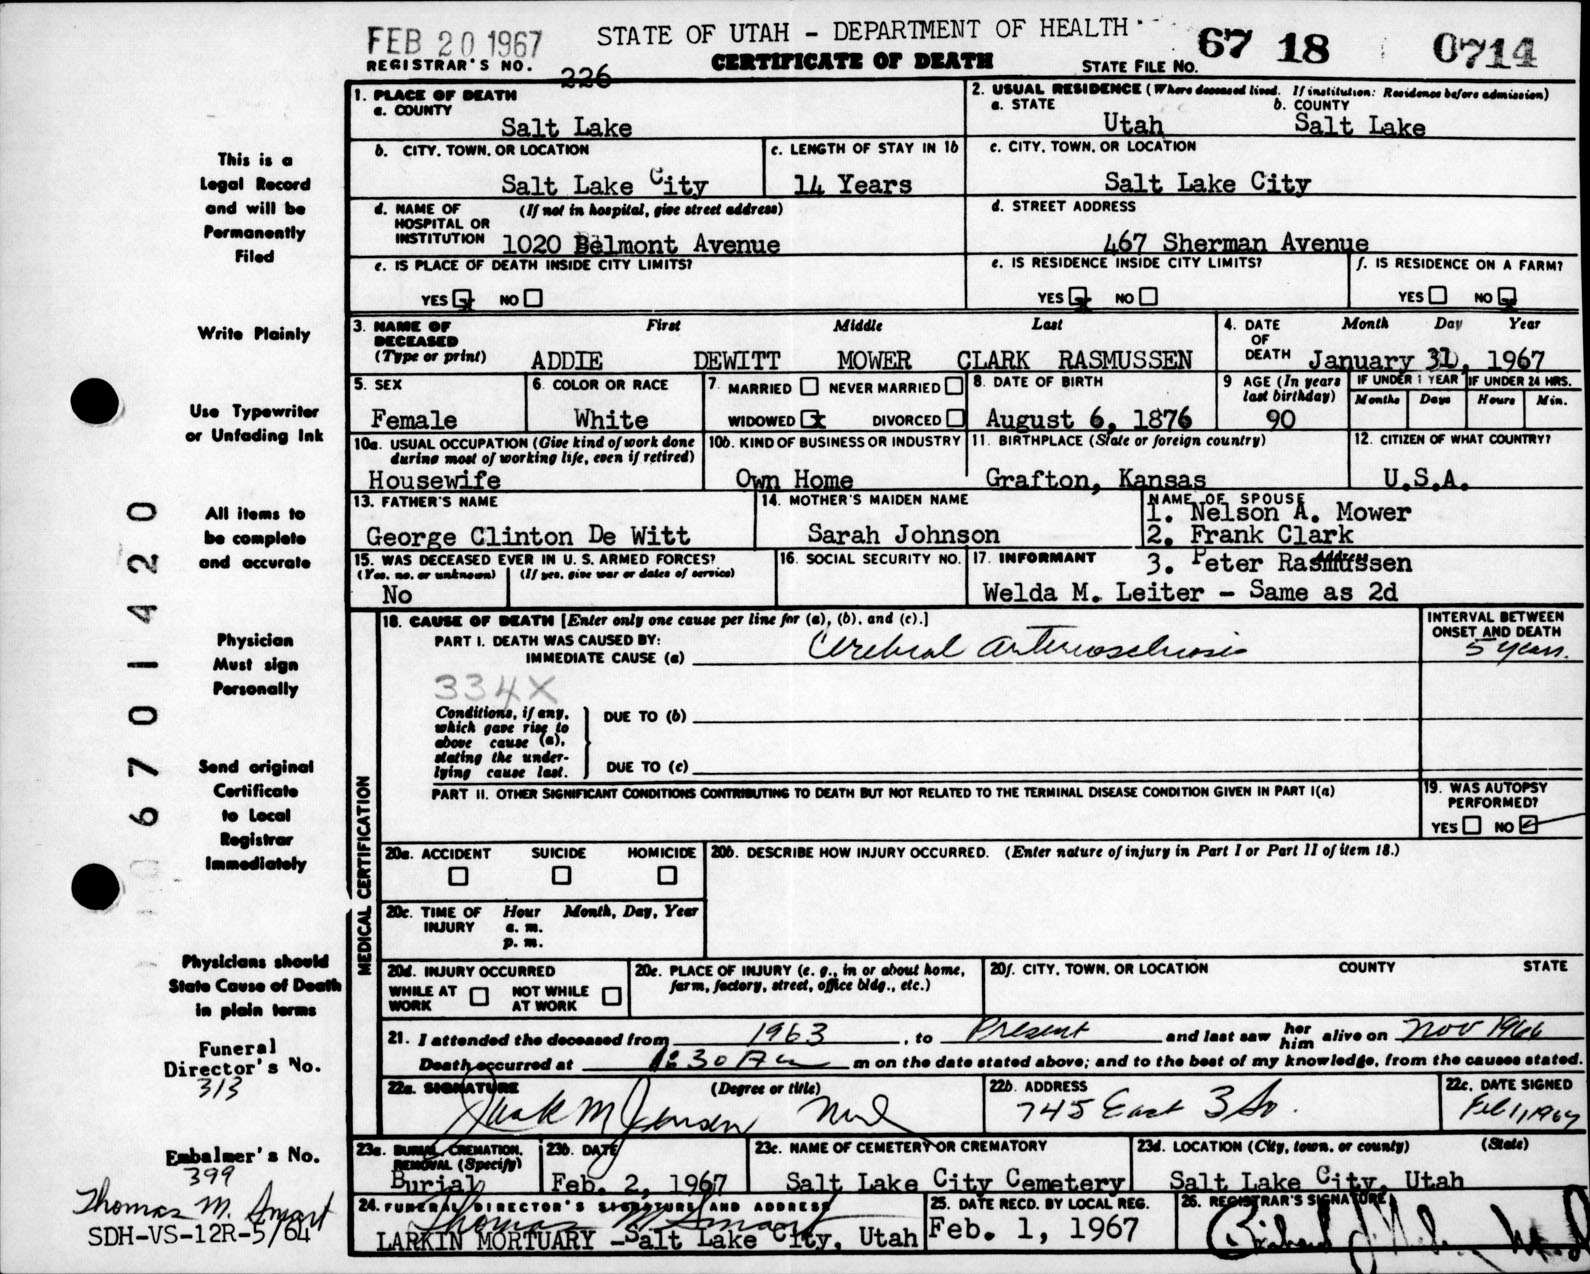 FEB 20 1967
STATE OF UTAH - DEPARTMENT OF HEALTH
67 18 0714
REGISTRAR'S NO. 226
CERTIFICATE OF DEATH
STATE FILE NO.
1. PLACE OF DEATH
a. COUNTY
Salt Lake
2. USUAL RESIDENCE (Where deceased lived. If institution: Residence before admission)
a. STATE b. COUNTY
Utah Salt Lake
b. CITY, TOWN, OR LOCATION
Salt Lake City
c. LENGTH OF STAY IN 1b
14 Years
c. CITY, TOWN, OR LOCATION
Salt Lake City
d. NAME OF HOSPITAL OR INSTITUTION (If not in hospital, give street address)
1020 Belmont Avenue
d. STREET ADDRESS
467 Sherman Avenue
e. IS PLACE OF DEATH INSIDE CITY LIMITS?
YES x NO
e. IS RESIDENCE INSIDE CITY LIMITS?
YES x NO
f. IS RESIDENCE ON A FARM?
YES NO x
3. NAME OF DECEASED (Type or print)
First Middle Last
ADDIE DEWITT MOWER CLARK RASMUSSEN
4. DATE OF DEATH
Month Day Year
January 31, 1967
5. SEX
Female
6. COLOR OR RACE
White
7. MARRIED NEVER MARRIED
WIDOWED x DIVORCED
8. DATE OF BIRTH
August 6, 1876
9 AGE (In years last birthday)
90
IF UNDER 1 YEAR
Months Days
IF UNDER 24 HRS.
Hours Min.
10a. USUAL OCCUPATION (Give kind of work done during most of working life, even if retired)
Housewife
10b. KIND OF BUSINESS OR INDUSTRY
Own Home
11. BIRTHPLACE (State or foreign country)
Grafton, Kansas
12. CITIZEN OF WHAT COUNTRY?
U.S.A.
13. FATHER'S NAME
George Clinton De Witt
14. MOTHER'S MAIDEN NAME
Sarah Johnson
NAME OF SPOUSE
1. Nelson A. Mower
2. Frank Clark
3. Peter Rasmussen
15. WAS DECEASED EVER IN U. S. ARMED FORCES?
(Yes, no, or unknown) (If yes, give war or dates of service)
No
16. SOCIAL SECURITY NO.
17. INFORMANT Address
Welda M. Leiter - Same as 2d
MEDICAL CERTIFICATION
18. CAUSE OF DEATH [Enter only one cause per line for (a), (b), and (c).]
PART I. DEATH WAS CAUSED BY:
IMMEDIATE CAUSE (a) Cerebral arteriosclerosis
INTERVAL BETWEEN ONSET AND DEATH
5 years.
334X
Conditions, if any, which gave rise to above cause (a), stating the underlying cause last.
DUE TO (b)
DUE TO (c)
PART II. OTHER SIGNIFICANT CONDITIONS CONTRIBUTING TO DEATH BUT NOT RELATED TO THE TERMINAL DISEASE CONDITION GIVEN IN PART I(a)
19. WAS AUTOPSY PERFORMED?
YES NO
20a. ACCIDENT SUICIDE HOMICIDE
20b. DESCRIBE HOW INJURY OCCURRED. (Enter nature of injury in Part I or Part II of item 18.)
20c. TIME OF INJURY
Hour Month, Day, Year
a. m.
p. m.
20d. INJURY OCCURRED
WHILE AT WORK NOT WHILE AT WORK
20e. PLACE OF INJURY (e. g., in or about home, farm, factory, street, office bldg., etc.)
20f. CITY, TOWN, OR LOCATION COUNTY STATE
21. I attended the deceased from 1963, to Present and last saw her him alive on Nov 1966
Death occurred at :30 A m on the date stated above; and to the best of my knowledge, from the causes stated.
22a. SIGNATURE (Degree or title)
Jack M Jensen
22b. ADDRESS
745 East 3 So.
22c. DATE SIGNED
Feb 1, 1967
23a. BURIAL, CREMATION, REMOVAL (Specify)
Burial
23b. DATE
Feb. 2, 1967
23c. NAME OF CEMETERY OR CREMATORY
Salt Lake City Cemetery
23d. LOCATION (City, town, or county) (State)
Salt Lake City, Utah
24. FUNERAL DIRECTOR'S SIGNATURE AND ADDRESS
Thomas M. Smart
LARKIN MORTUARY - Salt Lake City, Utah
25. DATE RECD. BY LOCAL REG.
Feb. 1, 1967
26. REGISTRAR'S SIGNATURE
This is a
Legal Record
and will be
Permanently
Filed
Write Plainly
Use Typewriter
or Unfading Ink
All items to
be complete
and accurate
Physician
Must sign
Personally
Send original
Certificate
to Local
Registrar
Immediately
Physicians should
State Cause of Death
in plain terms
Funeral
Director's No.
313
Embalmer's No.
399
Thomas M. Smart
SDH-VS-12R-5/64
06701420